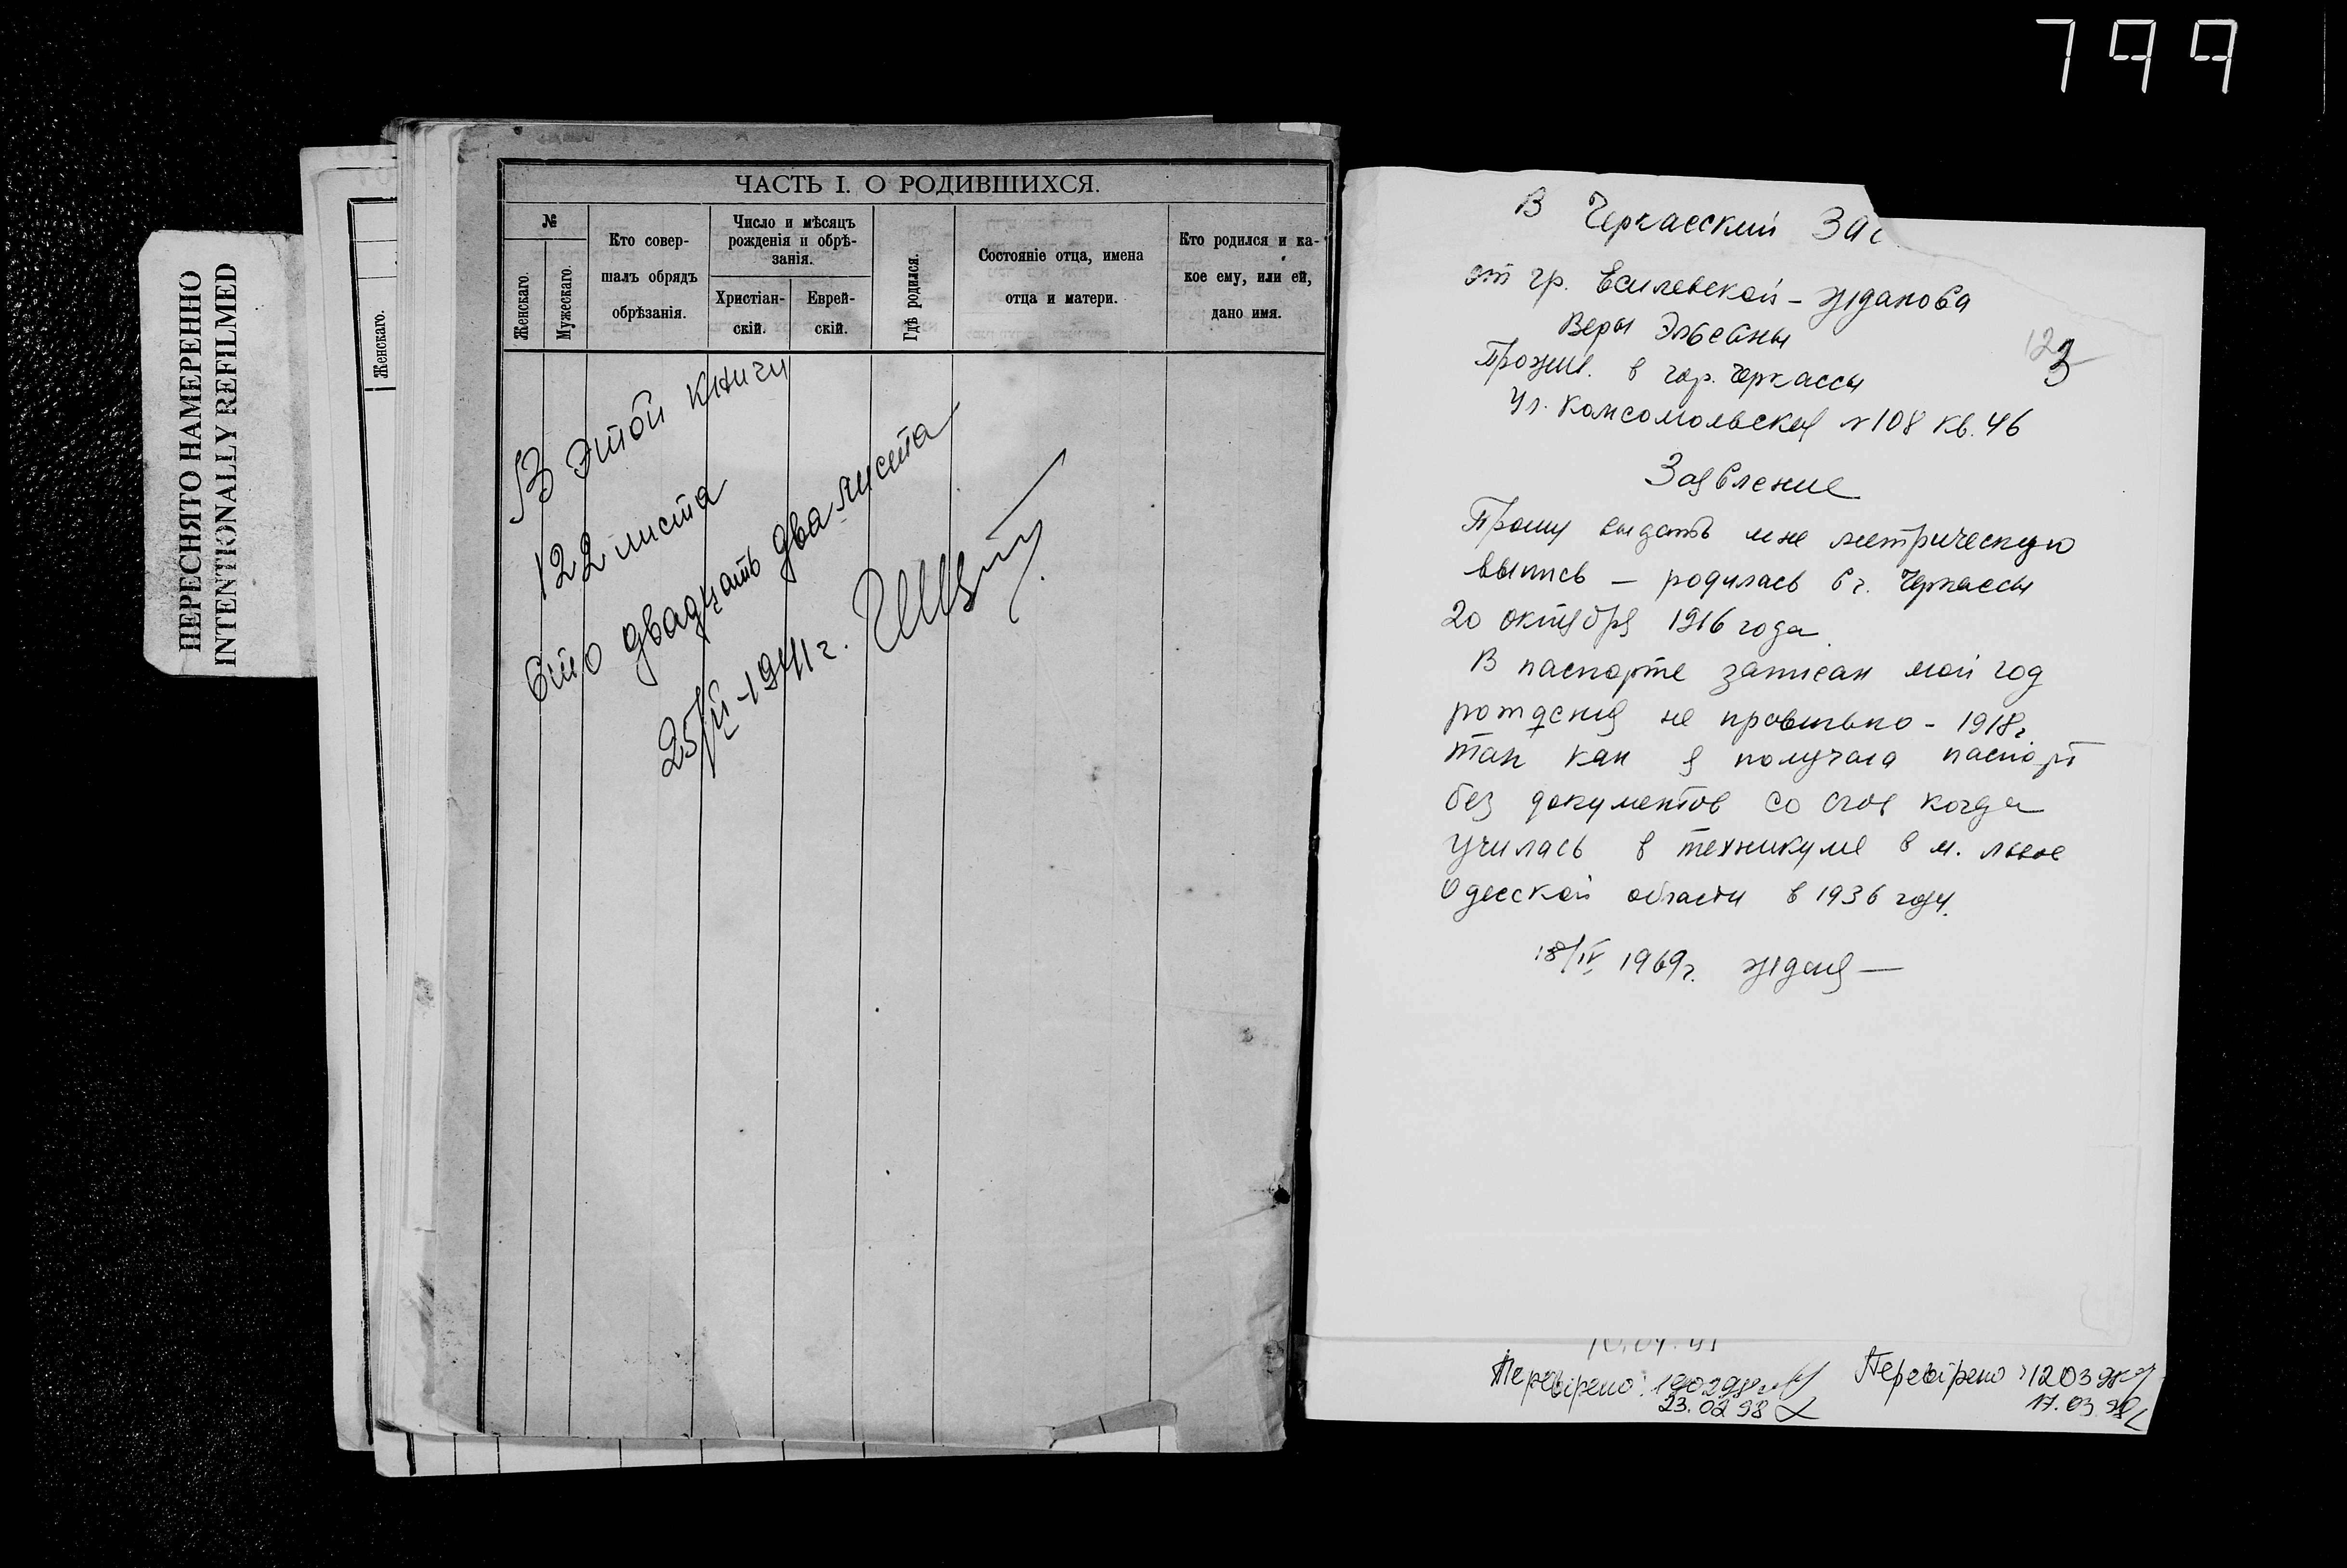 799
ПЕРЕСНЯТО НАМЕРЕННО
INTENTIONALLY REFILMED
Женскаго.
ЧАСТЬ I. О РОДИВШИХСЯ.
№
Женскаго.
Мужескаго.
Кто совер-
шалъ обрядъ
обрѣзанія.
Число и мѣсяцъ
рожденія и обрѣ-
занія.
Христіан-
скій.
Еврей-
скій.
Гдѣ родился.
Состояніе отца, имена
отца и матери.
Кто родился и ка-
кое ему, или ей,
дано имя.
В этой книги
122 листа
Сто двадцать два листа
1941 г.
В Черкасский Заг
от гр. Есилевской - Жданова
Веры
Прожив. в гор. Черкассы
Ул. Комсомольская №108 кв. 46
123
Заявление
Прошу выдать мне метрическую
выпись — родилась в г. Черкассы
20 октября 1916 года.
В паспорте записан мой год
рождения не правильно - 1918г.
так как я получала паспорт
без документов со слов когда
училась в техникуме в м.
Одесской области в 1936 году.
18/IV 1969г.
Перевірено: 190298
23.02 98
Перевірено 1203 98
17.03 98